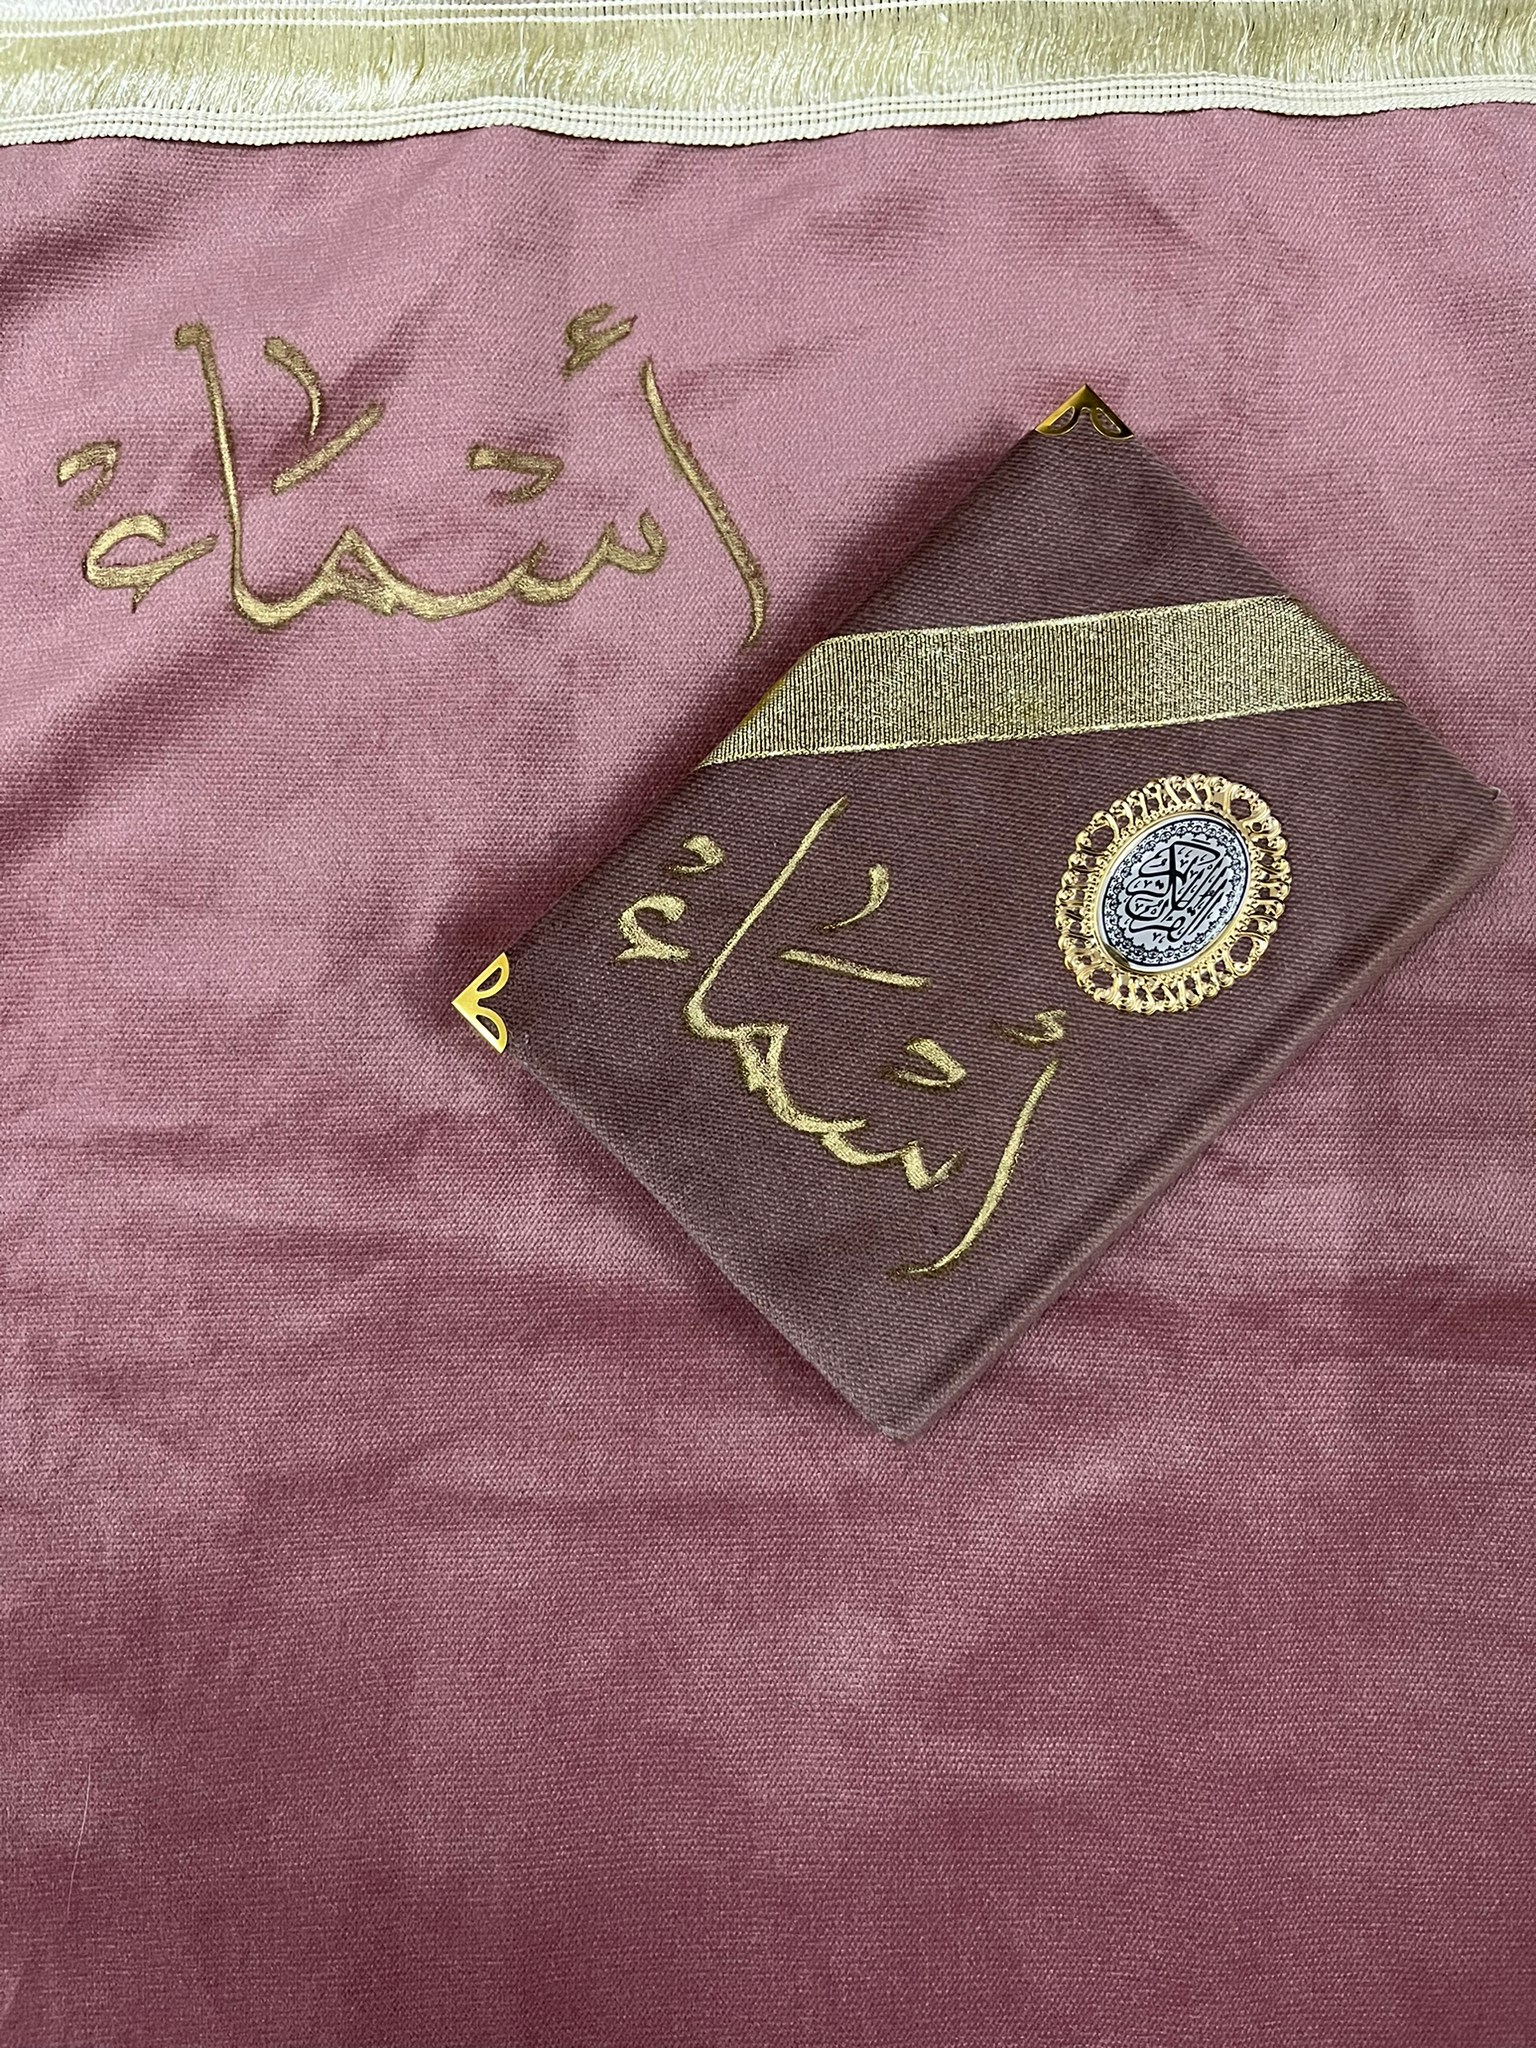 أسماء
أسماء
القرآن الكريم